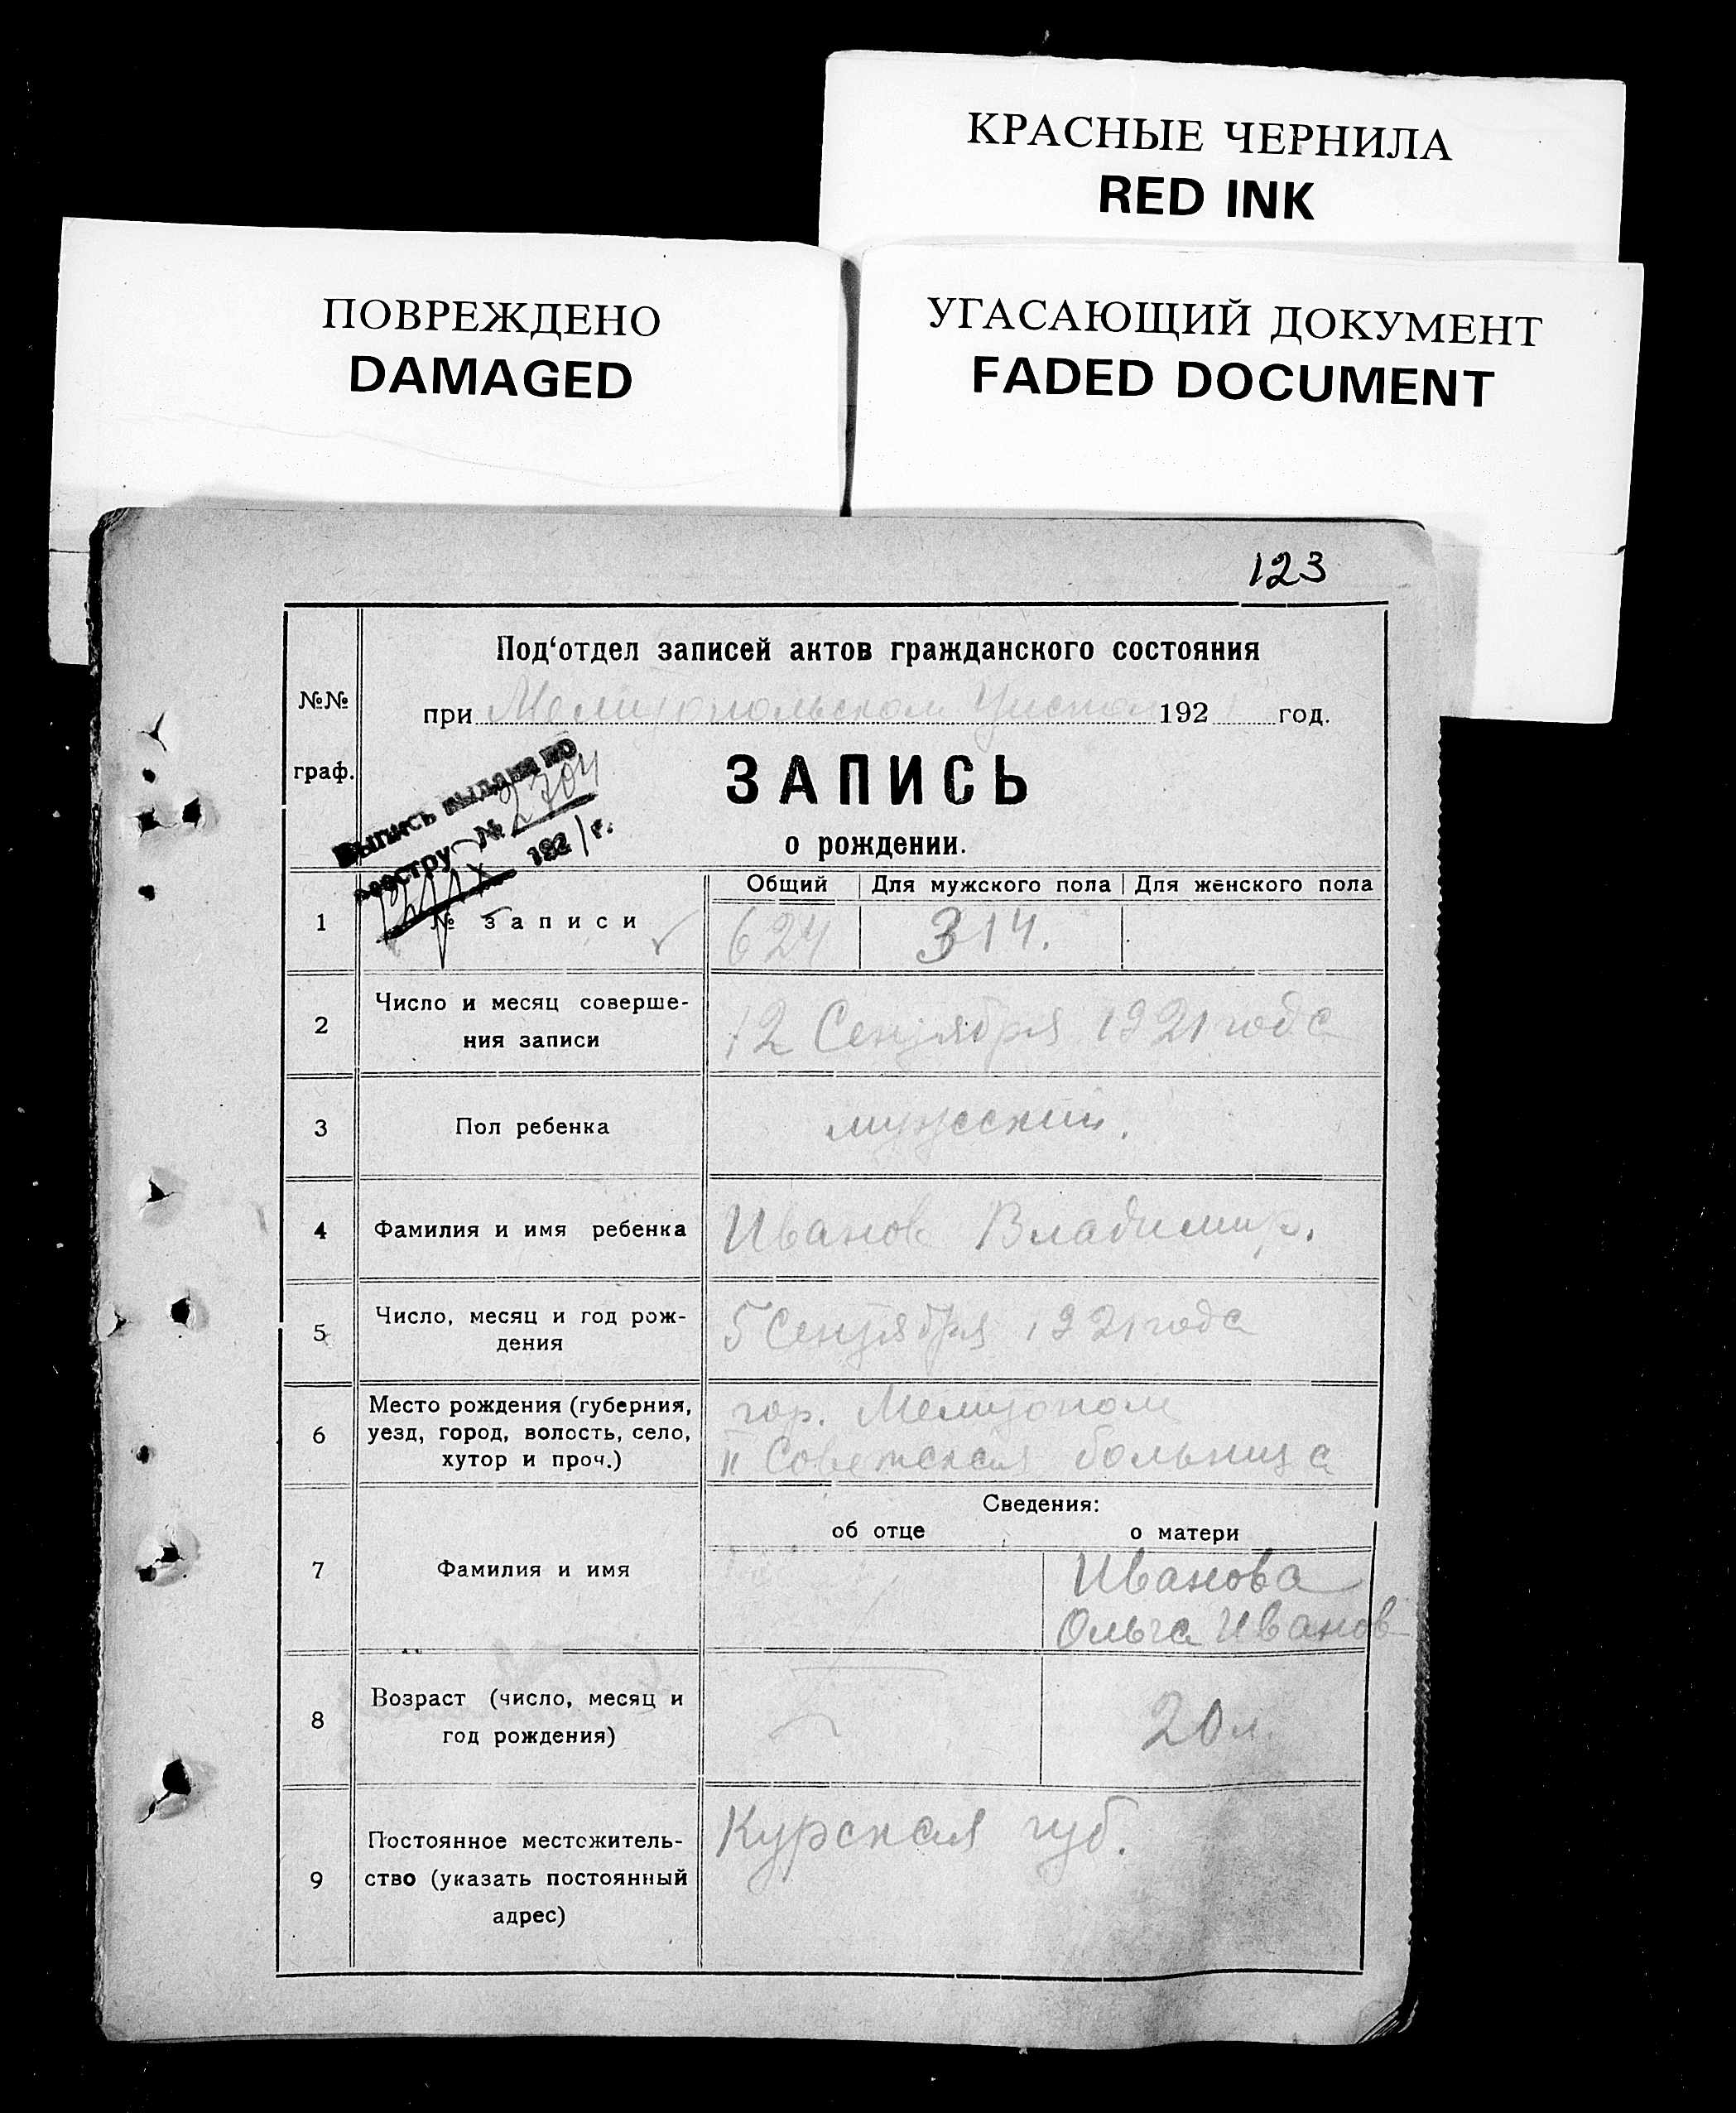 КРАСНЫЕ ЧЕРНИЛА
RED INK
ПОВРЕЖДЕНО
DAMAGED
УГАСАЮЩИЙ ДОКУМЕНТ
FADED DOCUMENT
123
№№
граф.
Под‘отдел записей актов гражданского состояния
при Мелитопольском 192 год.
ЗАПИСЬ
о рождении.
Выпись выдана по
реестру № 2704
1921 г.
Общий Для мужского пола Для женского пола
1 № записи 624 314.
2 Число и месяц соверше-
ния записи
12 Сентября 1921 года
3 Пол ребенка мужской.
4 Фамилия и имя ребенка Иванов Владимир.
5 Число, месяц и год рож-
дения
5 Сентября 1921 года
6 Место рождения (губерния,
уезд, город, волость, село,
хутор и проч.)
гор. Мелитополь
II Советская больница
Сведения:
об отце о матери
7 Фамилия и имя
Иванова
Ольга Иванов
8 Возраст (число, месяц и
год рождения)
20 л.
9 Постоянное местожитель-
ство (указать постоянный
адрес)
Курская губ.